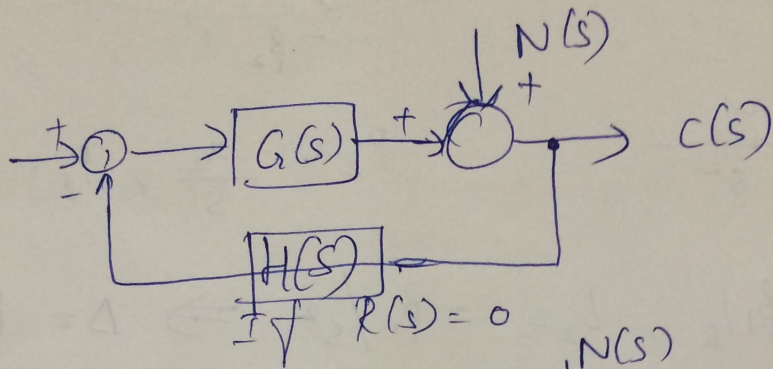 N(s)
+
+ G(s) + C(s)
-
H(S)
If R(s) = 0
N(s)